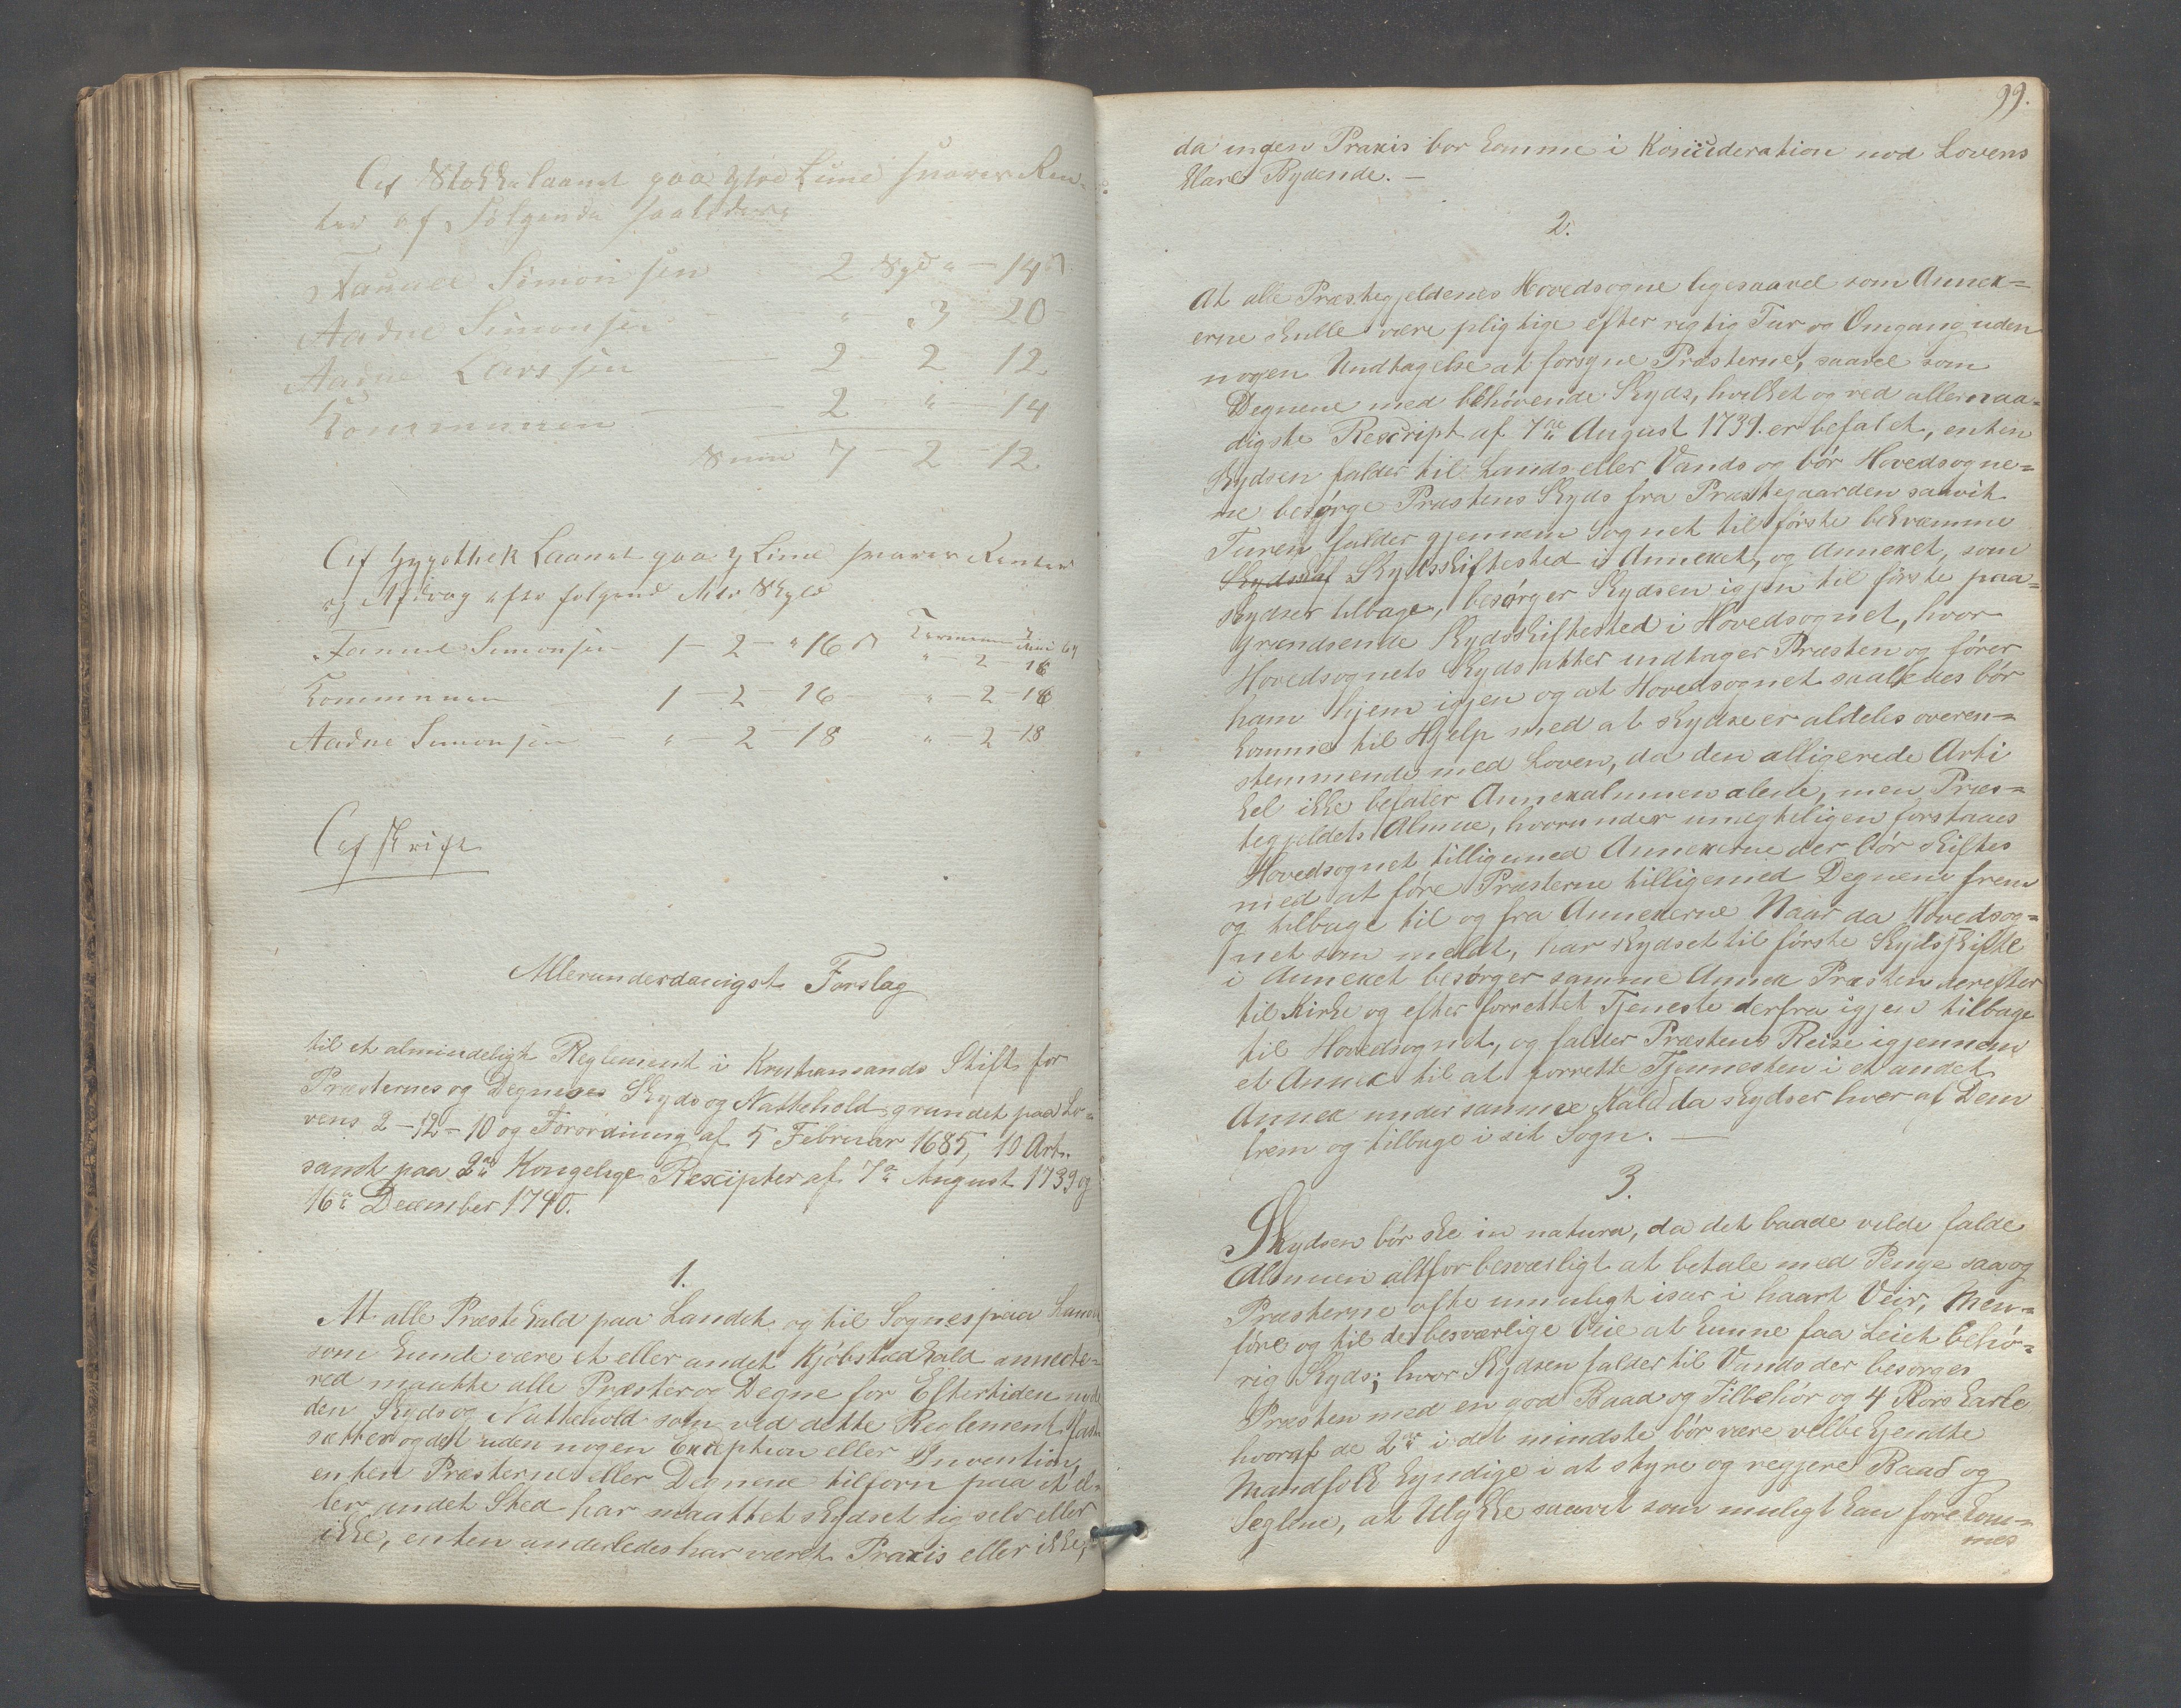 Af Stokkelaanet paa Ytre Lime svarer Ren-
ter af Følgende
Simonsen 2 Skyld " - 14
Aadne Simonsen " 3 20
Aadne Larssen 2 2 12
Kommunen 2 " 14
Sum 7 - 2 - 12
Af Hypothek Laanet paa Y Lime svarer Renter
og Afdrag efter følgend Mtr Skyld
Simonsen 1 - 2 - " 16 Termin
" - 2 - 16
Kommunen 1 - 2 - 16 " - 2 - 16
Aadne Simonsen " - 2 - 18 " - 2 - 18
Afskrift
Allerunderdanigst Forslag
til et almindeligt Reglement i Kristiansands Stift for
Præsternes og Degnenes Skyds og Nattehold grundet paa Lo-
vens 2-12-10 og Forordning af 5 Februar 1685, 10 Art.
samt paa 2de Kongelige Rescipter af 7de August 1739 og
16de December 1740.
1.
At alle Præstekald paa Landet og til Sognes paa Landet
som kunde være et eller andet Kjøbstadkald annecte-
red maatte alle Præster og Degne for Eftertiden nyde
den Skyds og Nattehold som ved dette Reglement fast-
sættes og det uden nogen Exeption eller Invention,
enten Præsterne eller Degnene tilforn paa et el-
ler andet Sted har maattet skydset sig selv eller
ikke, enten anderledes har været Praxis eller ikke,
99.
da ingen Praxis bør komme i Konsideration mod Lovens
klare Bydende. -
2.
At alle Præstegjeldenes Hovedsogne ligesaavel som Annex-
erne skulle være pligtige efter rigtig Tur og Omgang uden
nogen Undtagelse at forsyne Præsterne, saavel som
Degnene med behøvende Skyds, hvilket og ved allernaa-
digste Rescript af 7de August 1739. er befalet, enten
Skydsen falder til Lands eller Vands og bør Hovedsogne-
ne besørge Præstens Skyds fra Præstegaarden saavit
Turen falder gjennem Sognet til første bekvemme
Skydsskif Skydsskiftested i Annexet, og Annexet, som
skydser tilbage, besørger Skydsen igjen til første paa-
grændsende Skydsskiftested i Hovedsognet, hvor
Hovedsognets Skyds atter indtager Præsten og fører
ham hjem igjen og at Hovedsognet saaledes bør
komme til Hjelp med at skydse er aldeles overen-
stemmende med Loven, da den alligerede Arti
kel ikke befaler Annexalmuen alene, men Præs-
tegjeldets Almue, hvorunder unægteligen forstaaes
Hovedsognet tilligemed Annexerne der bør skiftes
med at føre Præsterne tilligemed Degnene frem
og tilbage til og fra Annexerne Naar da Hovedsog-
net som meldt, har skydset til første Skydsskifte
i Annexet besørger samme Annex Præsten derefter
til Kirke og efter forrettet Tjeneste derfra igjen tilbage
til Hovedsognet, og falder Præstens Reise igjennem
et Annex til at forrette Tjennesten i et andet
Annex under samme Kald da skydser hver af Dem
frem og tilbage i sit Sogn. -
3.
Skydsen bør ske in natura, da det baade vilde falde
Almuen altfor besværligt at betale med Penge saa og
Præsterne ofte umuligt især i haart Veir, Men-
føre og til de besværlige Veie at kunne faa Leiet behø-
rig Skyds; hvor Skydsen falder til Vands der besørges
Præsten med en god Baad og Tilbehør og 4 Rorskarle
hvoraf de 2de i det mindste bør være velbekjendte
Mandfolk kyndige i at styre og regjere Baad og
Seglene, at Ulykke saavit som muligt kan forekom-
mes